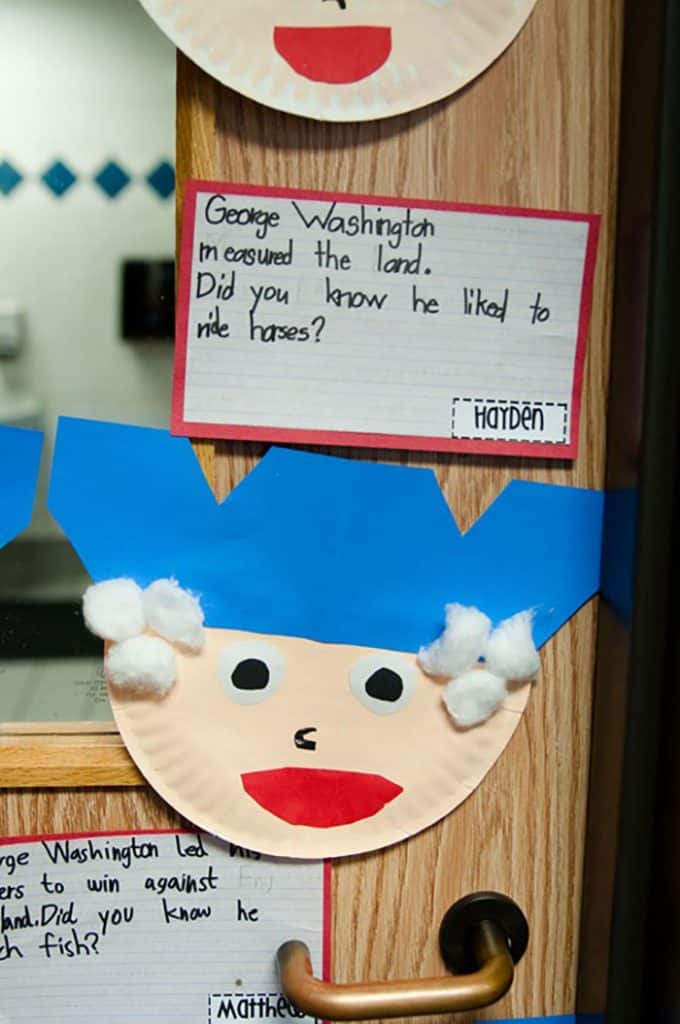 George Washington
measured the land.
Did you know he liked to
ride horses?
HAYDEN
Washington led his
to win against
Did you know he
fish?
Matthew